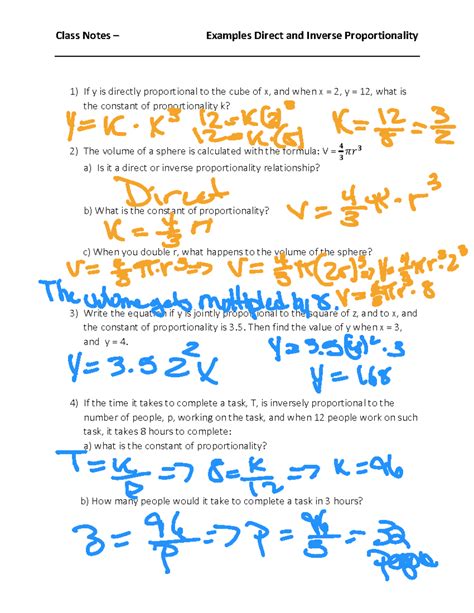 Class Notes – Examples Direct and Inverse Proportionality
1) If y is directly proportional to the cube of x, and when x = 2, y = 12, what is
the constant of proportionality k?
y = K · x³ 12 = K(2)³ K = 12/8 = 3/2
12 = K(8)
2) The volume of a sphere is calculated with the formula: V = 4/3 πr³
a) Is it a direct or inverse proportionality relationship?
Direct
b) What is the constant of proportionality? V = 4/3 π · r³
K = 4/3 π
c) When you double r, what happens to the volume of the sphere?
V = 4/3 π · r³ => V = 4/3 π (2r)³ V = 4/3 π r³ · 2³
The volume gets multiplied by 8. V = 4/3 π r³ · 8
3) Write the equation if y is jointly proportional to the square of z, and to x, and
the constant of proportionality is 3.5. Then find the value of y when x = 3,
and y = 4.
y = 3.5 z² x y = 3.5(4)² · 3
y = 168
4) If the time it takes to complete a task, T, is inversely proportional to the
number of people, p, working on the task, and when 12 people work on such
task, it takes 8 hours to complete:
a) what is the constant of proportionality?
T = K/P => 8 = K/12 => K = 96
b) How many people would it take to complete a task in 3 hours?
3 = 96/P => P = 96/3 => 32
People